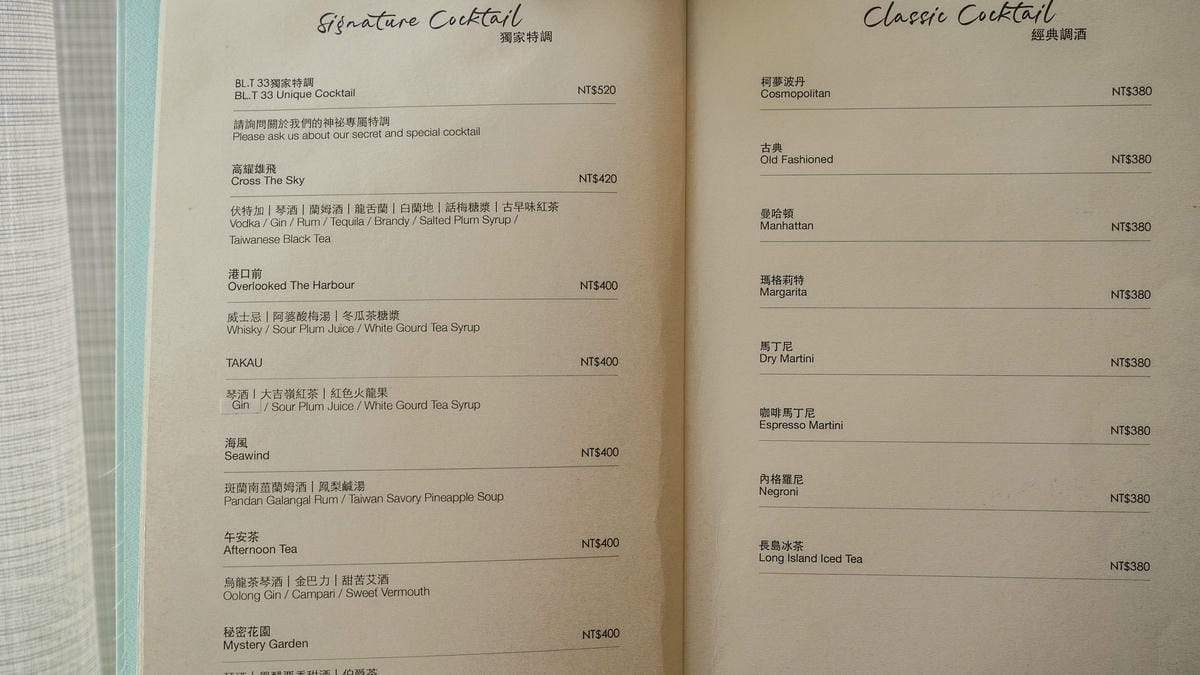 Signature Cocktail
獨家特調
BL.T 33獨家特調
BL.T 33 Unique Cocktail NT$520
請詢問關於我們的神祕專屬特調
Please ask us about our secret and special cocktail
高耀雄飛
Cross The Sky NT$420
伏特加 | 琴酒 | 蘭姆酒 | 龍舌蘭 | 白蘭地 | 話梅糖漿 | 古早味紅茶
Vodka / Gin / Rum / Tequila / Brandy / Salted Plum Syrup /
Taiwanese Black Tea
港口前
Overlooked The Harbour NT$400
威士忌 | 阿婆酸梅湯 | 冬瓜茶糖漿
Whisky / Sour Plum Juice / White Gourd Tea Syrup
TAKAU NT$400
琴酒 | 大吉嶺紅茶 | 紅色火龍果
Gin / Sour Plum Juice / White Gourd Tea Syrup
海風
Seawind NT$400
斑蘭南薑蘭姆酒 | 鳳梨鹹湯
Pandan Galangal Rum / Taiwan Savory Pineapple Soup
午安茶
Afternoon Tea NT$400
烏龍茶琴酒 | 金巴力 | 甜苦艾酒
Oolong Gin / Campari / Sweet Vermouth
秘密花園
Mystery Garden NT$400
Classic Cocktail
經典調酒
柯夢波丹
Cosmopolitan NT$380
古典
Old Fashioned NT$380
曼哈頓
Manhattan NT$380
瑪格莉特
Margarita NT$380
馬丁尼
Dry Martini NT$380
咖啡馬丁尼
Espresso Martini NT$380
內格羅尼
Negroni NT$380
長島冰茶
Long Island Iced Tea NT$380